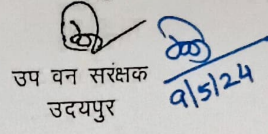 उप वन सरंक्षक
उदयपुर
9/5/24